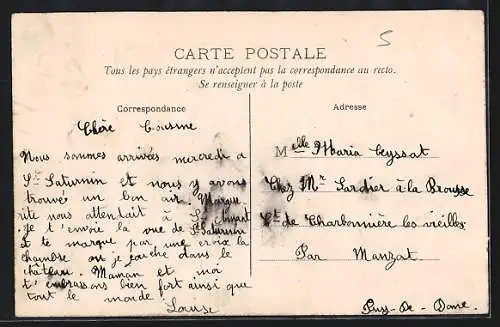 5
CARTE POSTALE
Tous les pays étrangers n'acceptent pas la correspondance au recto.
Se renseigner à la poste
Correspondance
Chère Cousine
Nous sommes arrivés mercredi a
St Saturnin et nous y avons
trouvés un bon air. Margue
rite nous attendait à
je t'envoie la vue de St Saturnin
et te marque par une croix la
chambre ou je couche dans le
château. Maman et moi
t'embrassons bien fort ainsi que
tout le monde
Louise
Adresse
Melle Maria Ceyssat
Chez Mr Sardier à la Brousse
Ct de Charbonnière les vieilles
Par Manzat.
Puy-De-Dome.